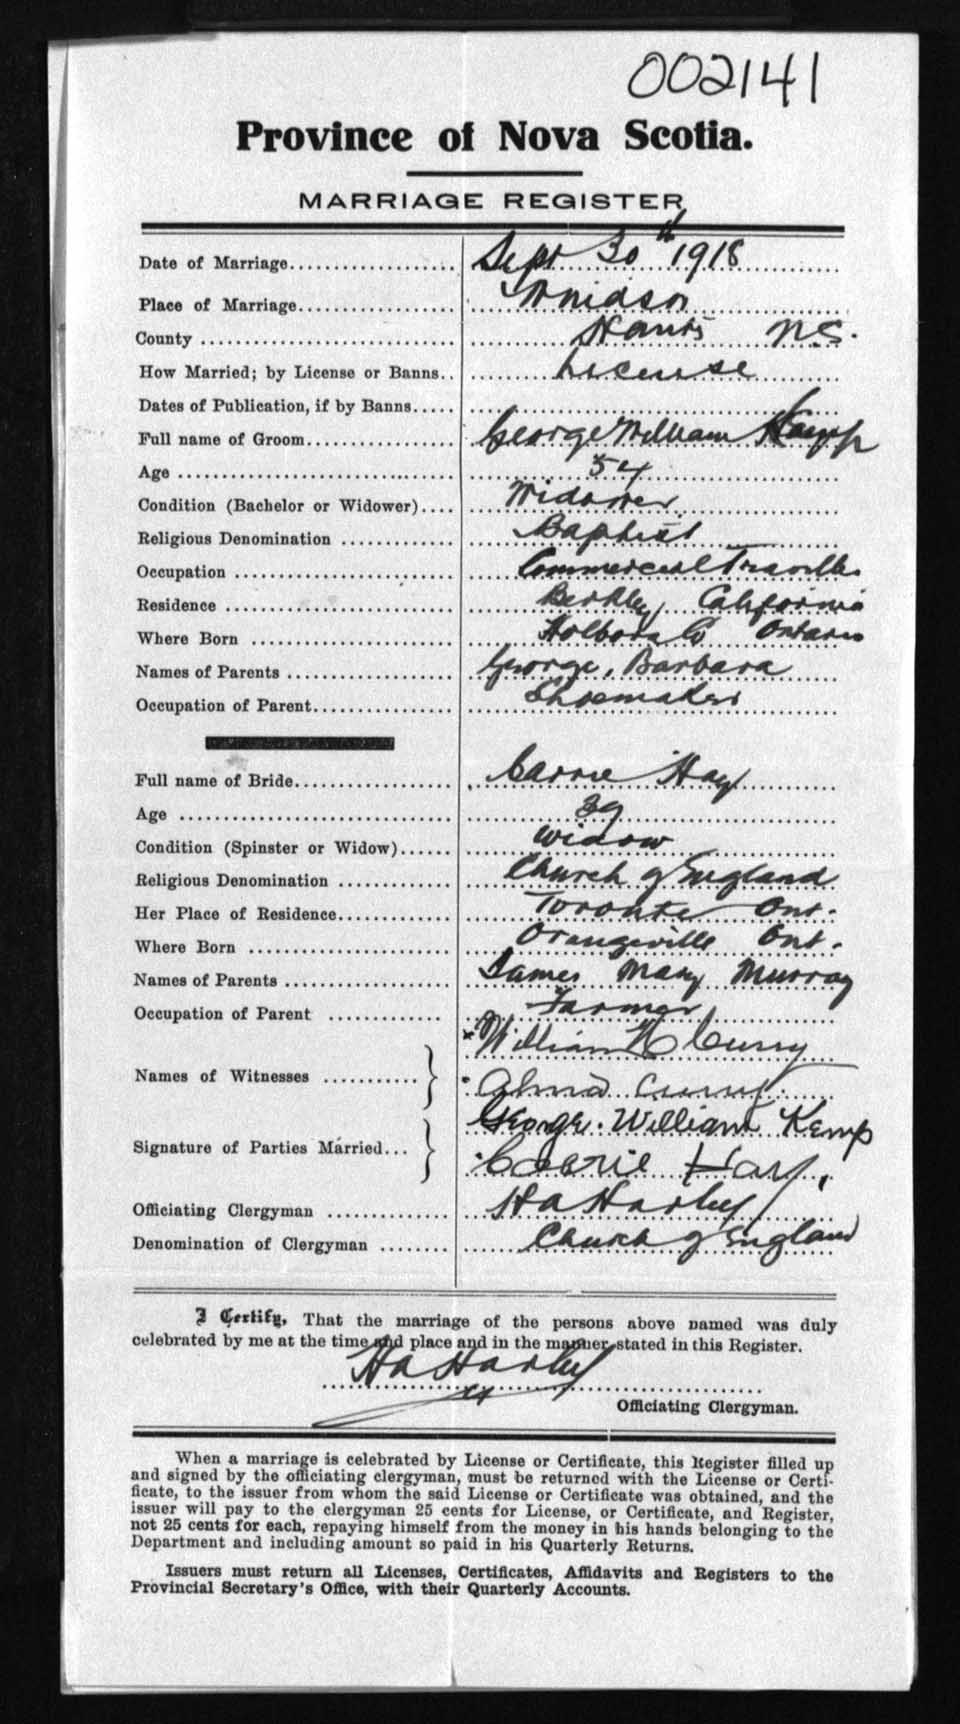 002141
Province of Nova Scotia.
MARRIAGE REGISTER
Date of Marriage Sept 30th 1918
Place of Marriage Windsor
County Hants N.S.
How Married; by License or Banns License
Dates of Publication, if by Banns
Full name of Groom George William Kemp
Age 54
Condition (Bachelor or Widower) Widower
Religious Denomination Baptist
Occupation Commercial Traveller
Residence Berkley California
Where Born Co Ontario
Names of Parents George, Barbara
Occupation of Parent Shoemaker
Full name of Bride Carrie Hay
Age 39
Condition (Spinster or Widow) Widow
Religious Denomination Church of England
Her Place of Residence Toronto Ont.
Where Born Orangeville Ont.
Names of Parents James Mary Murray
Occupation of Parent Farmer
William H Curry
Names of Witnesses }
Alma Curry
George. William Kemp
Signature of Parties Married... }
Carrie Hay,
Officiating Clergyman H A Harley
Denomination of Clergyman Church of England
I Certify, That the marriage of the persons above named was duly
celebrated by me at the time and place and in the manner stated in this Register.
H A Harley
Officiating Clergyman.
When a marriage is celebrated by License or Certificate, this Register filled up
and signed by the officiating clergyman, must be returned with the License or Certi-
ficate, to the issuer from whom the said License or Certificate was obtained, and the
issuer will pay to the clergyman 25 cents for License, or Certificate, and Register,
not 25 cents for each, repaying himself from the money in his hands belonging to the
Department and including amount so paid in his Quarterly Returns.
Issuers must return all Licenses, Certificates, Affidavits and Registers to the
Provincial Secretary's Office, with their Quarterly Accounts.